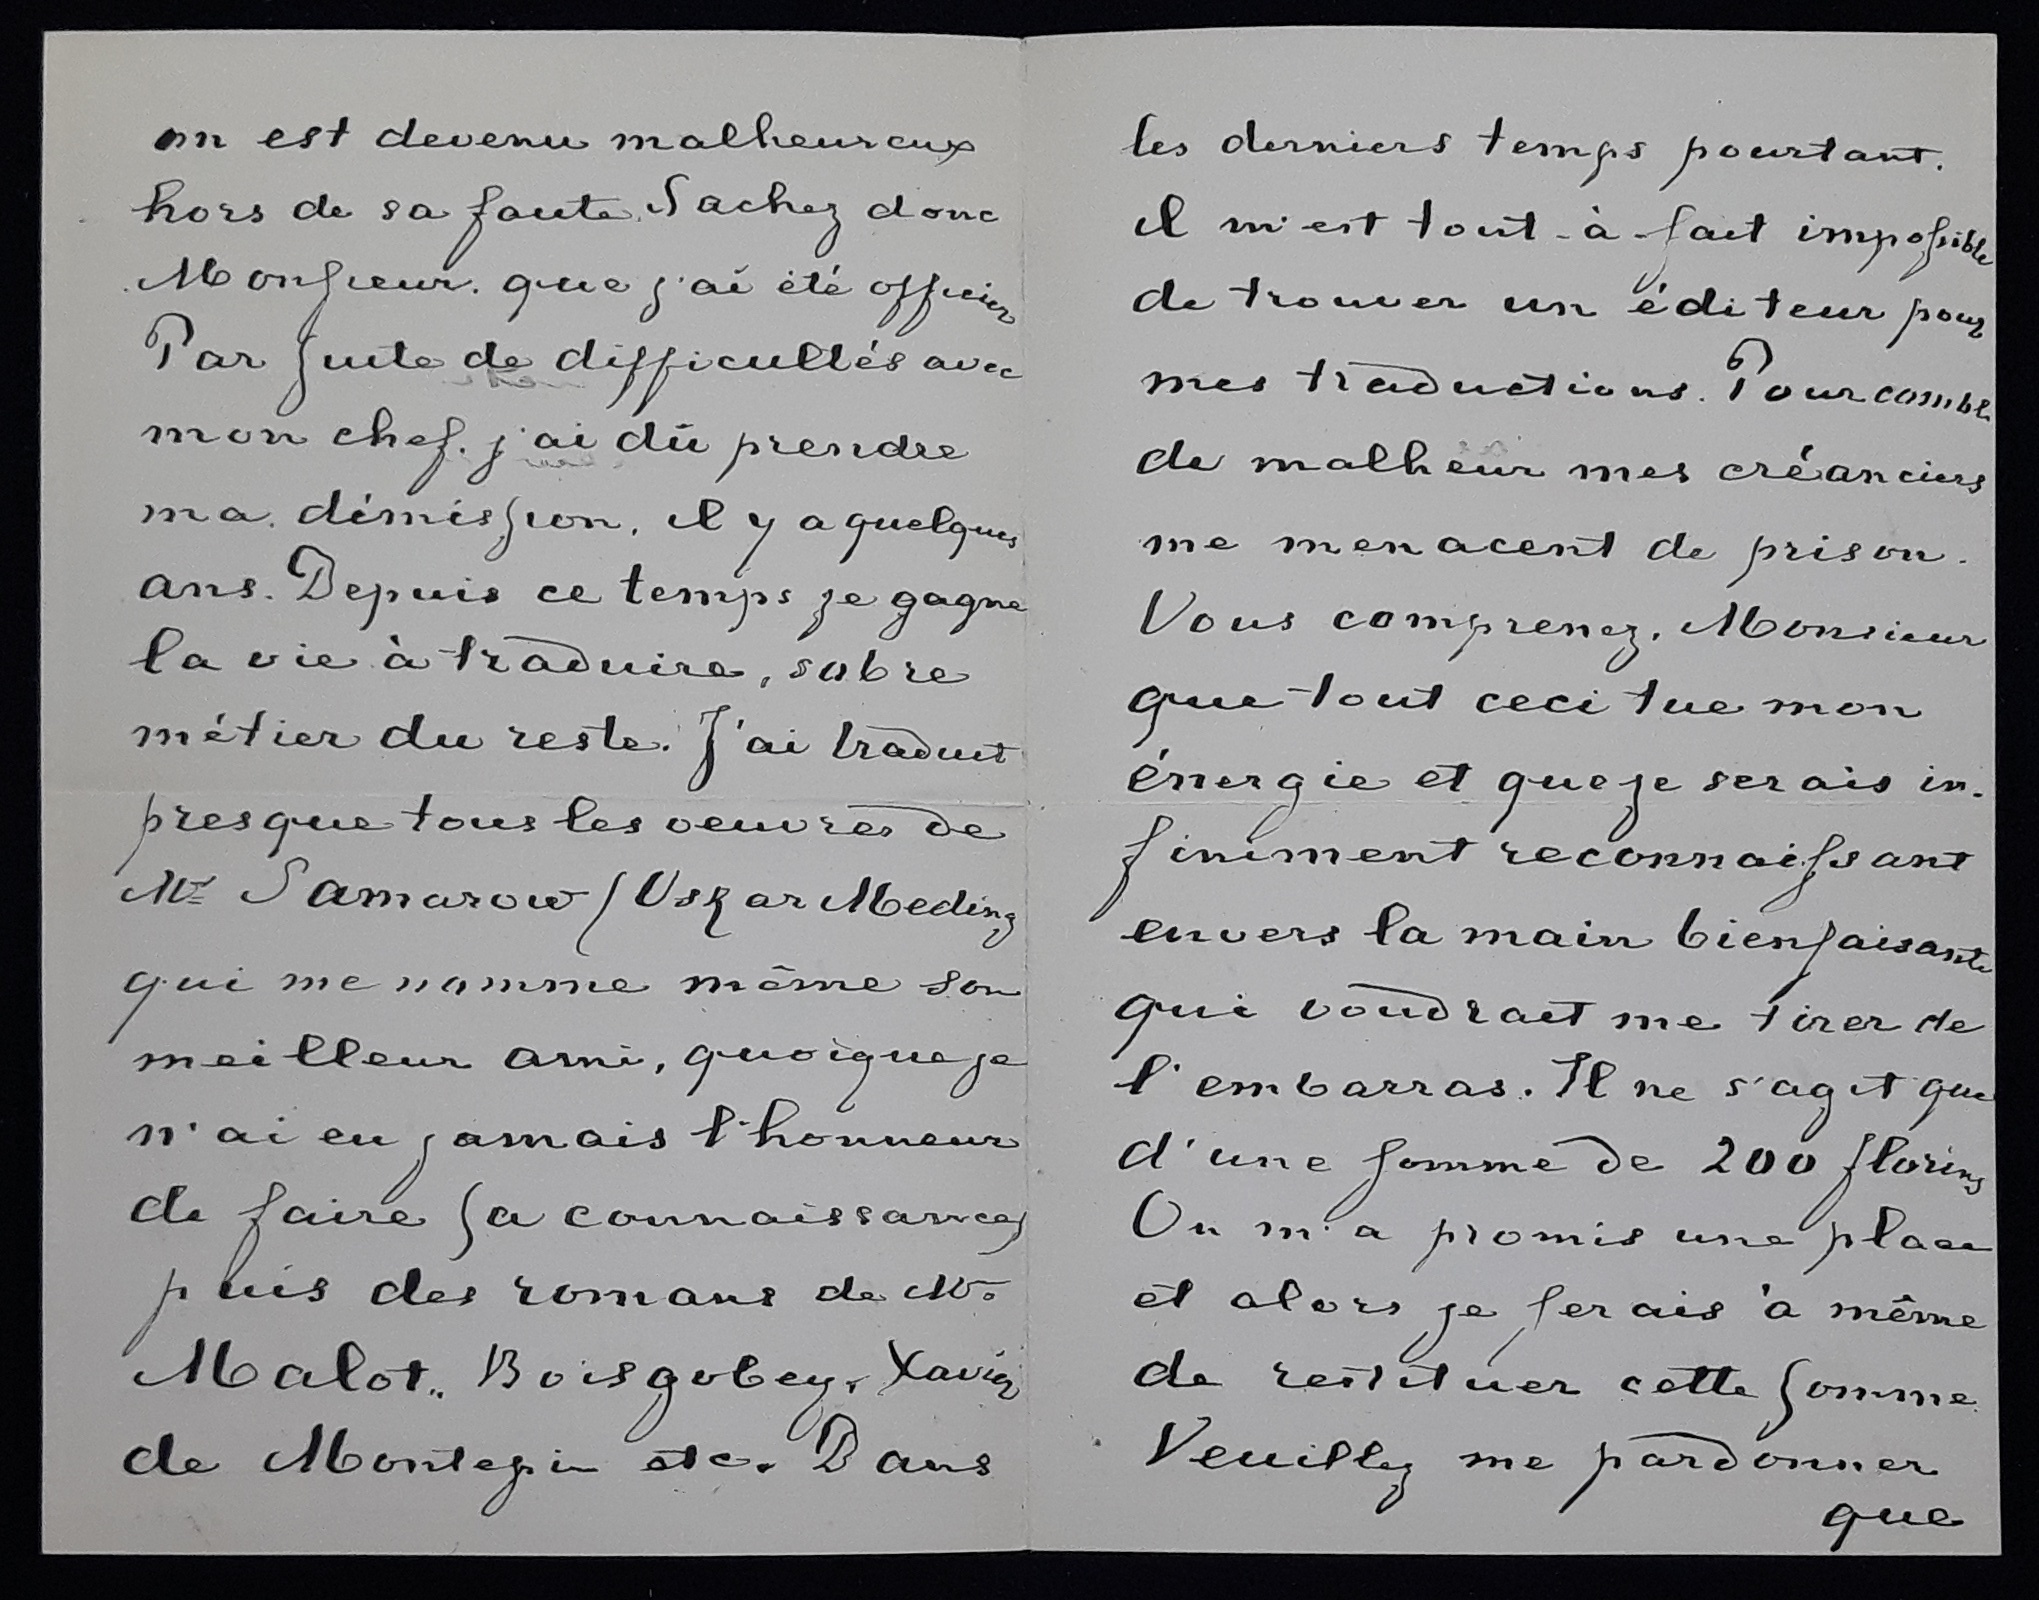 on est devenu malheureux
hors de sa faute. Sachez donc
Monsieur. que j'ai été officier
Par suite de difficultés avec
mon chef. j'ai dû prendre
ma démission, il y a quelques
ans. Depuis ce temps je gagne
la vie à traduire, sobre
métier du reste. J'ai traduit
presque tous les oeuvres de
Mr Samarow (Oskar Meding
qui me nomme même son
meilleur ami, quoique je
n'ai eu jamais l'honneur
de faire sa connaissance)
puis des romans de Mr.
Malot, Boisgobey, Xavier
de Montepin etc. Dans
les derniers temps pourtant.
il m'est tout-à-fait impossible
de trouver un éditeur pour
mes traductions. Pour comble
de malheur mes créanciers
me menacent de prison.
Vous comprenez, Monsieur
que tout ceci tue mon
énergie et que je serais in-
finiment reconnaissant
envers la main bienfaisante
qui voudrait me tirer de
l'embarras. Il ne s'agit que
d'une somme de 200 florins
On m'a promis une place
et alors je serais à même
de restituer cette somme.
Veuillez me pardonner
que